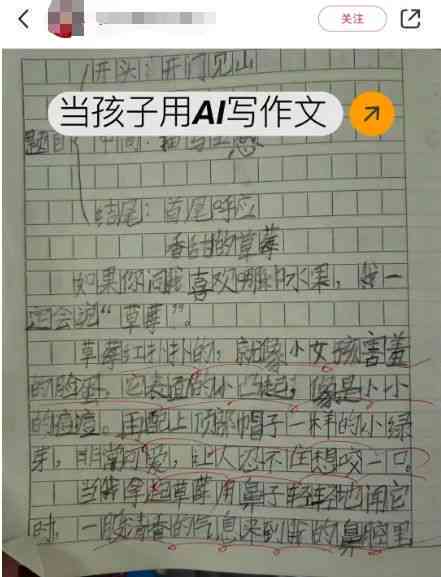 关注
开头：开门见山
当孩子用AI写作文
题目
中间：描写生感
结尾：首尾呼应
香甜的草莓
如果你问我喜欢哪种水果，我一
定会说“草莓”。
草莓红扑扑的，就像小女孩害羞
的脸蛋，它表面的小凸起，像是小小
的痘痘。再配上顶部帽子一样的小绿
芽，非常可爱，让人忍不住想咬一口。
当我拿起草莓用鼻子轻轻地闻它
时，一股清香的气息来到我的鼻腔里